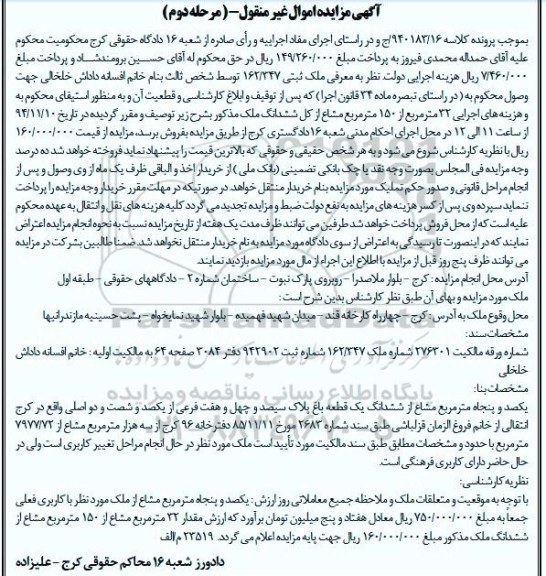 آگهی مزایده اموال غیر منقول - (مرحله دوم)
بموجب پرونده کلاسه ۹۴۰۱۸۳/۱۶/ج و در راستای اجرای مفاد اجراییه و رأی صادره از شعبه ۱۶ دادگاه حقوقی کرج محکومیت محکوم
علیه آقای حمداله محمدی فیروز به پرداخت مبلغ ۱۴۹/۲۶۰/۰۰۰ ریال در حق محکوم له آقای حسین برومندشاد و پرداخت مبلغ
۷/۴۶۰/۰۰۰ ریال هزینه اجرایی دولت. نظر به معرفی ملک ثبتی ۱۶۲/۳۴۷ توسط شخص ثالث بنام خانم افسانه داداش خلخالی جهت
وصول محکوم به (در راستای تبصره ماده ۳۴ قانون اجرا) که پس از توقیف و ابلاغ کارشناسی و قطعیت آن و به منظور استیفای محکوم به
و هزینه های اجرایی ۳۲ مترمربع از ۱۵۰ مترمربع مشاع از کل ششدانگ ملک مذکور بشرح زیر توصیف و مقرر گردیده در تاریخ ۹۴/۱۱/۱۰
از ساعت ۱۱ الی ۱۲ در محل اجرای احکام مدنی شعبه ۱۶ دادگستری کرج از طریق مزایده بفروش برسد، مزایده از قیمت ۱۶۰/۰۰۰/۰۰۰
ریال با نظریه کارشناس شروع می شود و به هر شخص حقیقی و حقوقی که بالاترین قیمت را پیشنهاد نماید فروخته خواهد شد. ده درصد
وجه مزایده فی المجلس بصورت وجه نقد یا چک بانکی تضمینی (بانک ملی) از خریدار اخذ و الباقی ظرف یک ماه از وی وصول و پس از
انجام مراحل قانونی و صدور حکم تملیک مورد مزایده بنام خریدار منتقل خواهد. در صورتیکه در مهلت مقرر خریدار وجه مزایده را پرداخت
ننماید سپرده وی پس از کسر هزینه های مزایده به نفع دولت ضبط و مزایده تجدید می گردد کلیه هزینه های نقل و انتقال به عهده محکوم
علیه است که از محل فروش پرداخت خواهد شد طرفین می توانند ظرف مدت یک هفته از تاریخ مزایده نسبت به نحوه انجام مزایده اعتراض
نمایند که در اینصورت تا رسیدگی به اعتراض از سوی دادگاه مورد مزایده به نام خریدار منتقل نخواهد شد. ضمنا طالبین بشرکت در مزایده
می توانند ظرف پنج روز قبل از مزایده با اطلاع این اجرا از مال مورد مزایده بازدید نمایند.
آدرس محل انجام مزایده: کرج - بلوار ملاصدرا - روبروی پارک نبوت - ساختمان شماره ۲ - دادگاههای حقوقی - طبقه اول
ملک مورد مزایده و بهای آن طبق نظر کارشناس بدین شرح است:
محل وقوع ملک به آدرس: کرج - چهارراه کارخانه قند - میدان شهید فهمیده - بلوار شهید نمایخواه - پشت حسینیه مازندرانیها
مشخصات سند:
شماره ورقه مالکیت ۲۷۶۳۰۱ شماره ملک ۱۶۲/۳۴۷ شماره ثبت ۹۴۲۹۰۲ دفتر ۳۰۸۴ صفحه ۶۴ به مالکیت اولیه: خانم افسانه داداش
خلخالی
مشخصات بنا:
یکصد و پنجاه مترمربع مشاع از ششدانگ یک قطعه باغ پلاک سیصد و چهل و هفت فرعی از یکصد و شصت و دو اصلی واقع در کرج
انتقالی از خانم فروغ الزمان قزلباشی طبق سند شماره ۲۶۸۳ مورخ ۸۵/۱۱/۱۱ دفترخانه ۹۶ کرج از سه هزار مترمربع مشاع از ۷۹۷۷/۷۲
مترمربع با حدود و مشخصات مطابق طبق سند مالکیت مورد تأیید است ملک مورد نظر در حال انجام مراحل تغییر کاربری است ولی در
حال حاضر دارای کاربری فرهنگی است.
نظریه کارشناسی:
با توجه به موقعیت و متعلقات ملک و ملاحظه جمیع معاملاتی روز ارزش: یکصد و پنجاه مترمربع مشاع از ملک مورد نظر با کاربری فعلی
جمعاً به مبلغ ۷۵۰/۰۰۰/۰۰۰ ریال معادل هفتاد و پنج میلیون تومان برآورد که ارزش مقدار ۳۲ مترمربع مشاع از ۱۵۰ مترمربع مشاع از
ششدانگ ملک مذکور مبلغ ۱۶۰/۰۰۰/۰۰۰ ریال جهت پایه مزایده اعلام می گردد. ۲۳۵۱۹ م/الف
دادورز شعبه ۱۶ محاکم حقوقی کرج - علیزاده